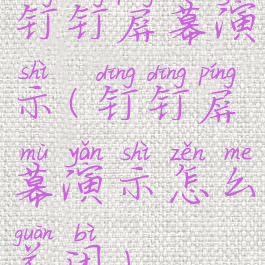 钉钉屏幕演
shì dīng dīng píng
示(钉钉屏
mù yǎn shì zěn me
幕演示怎么
guān bì
关闭)